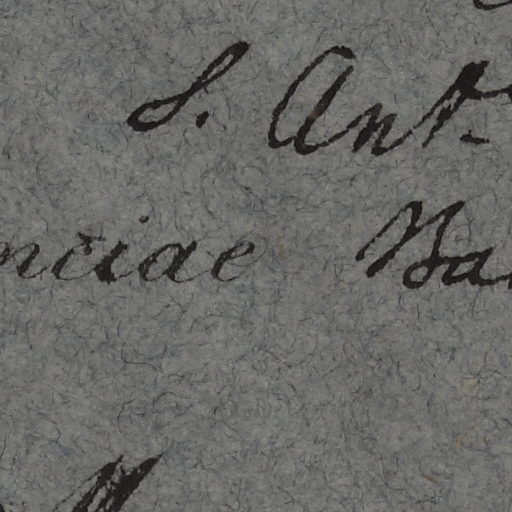 S. Ant
nciae Ba